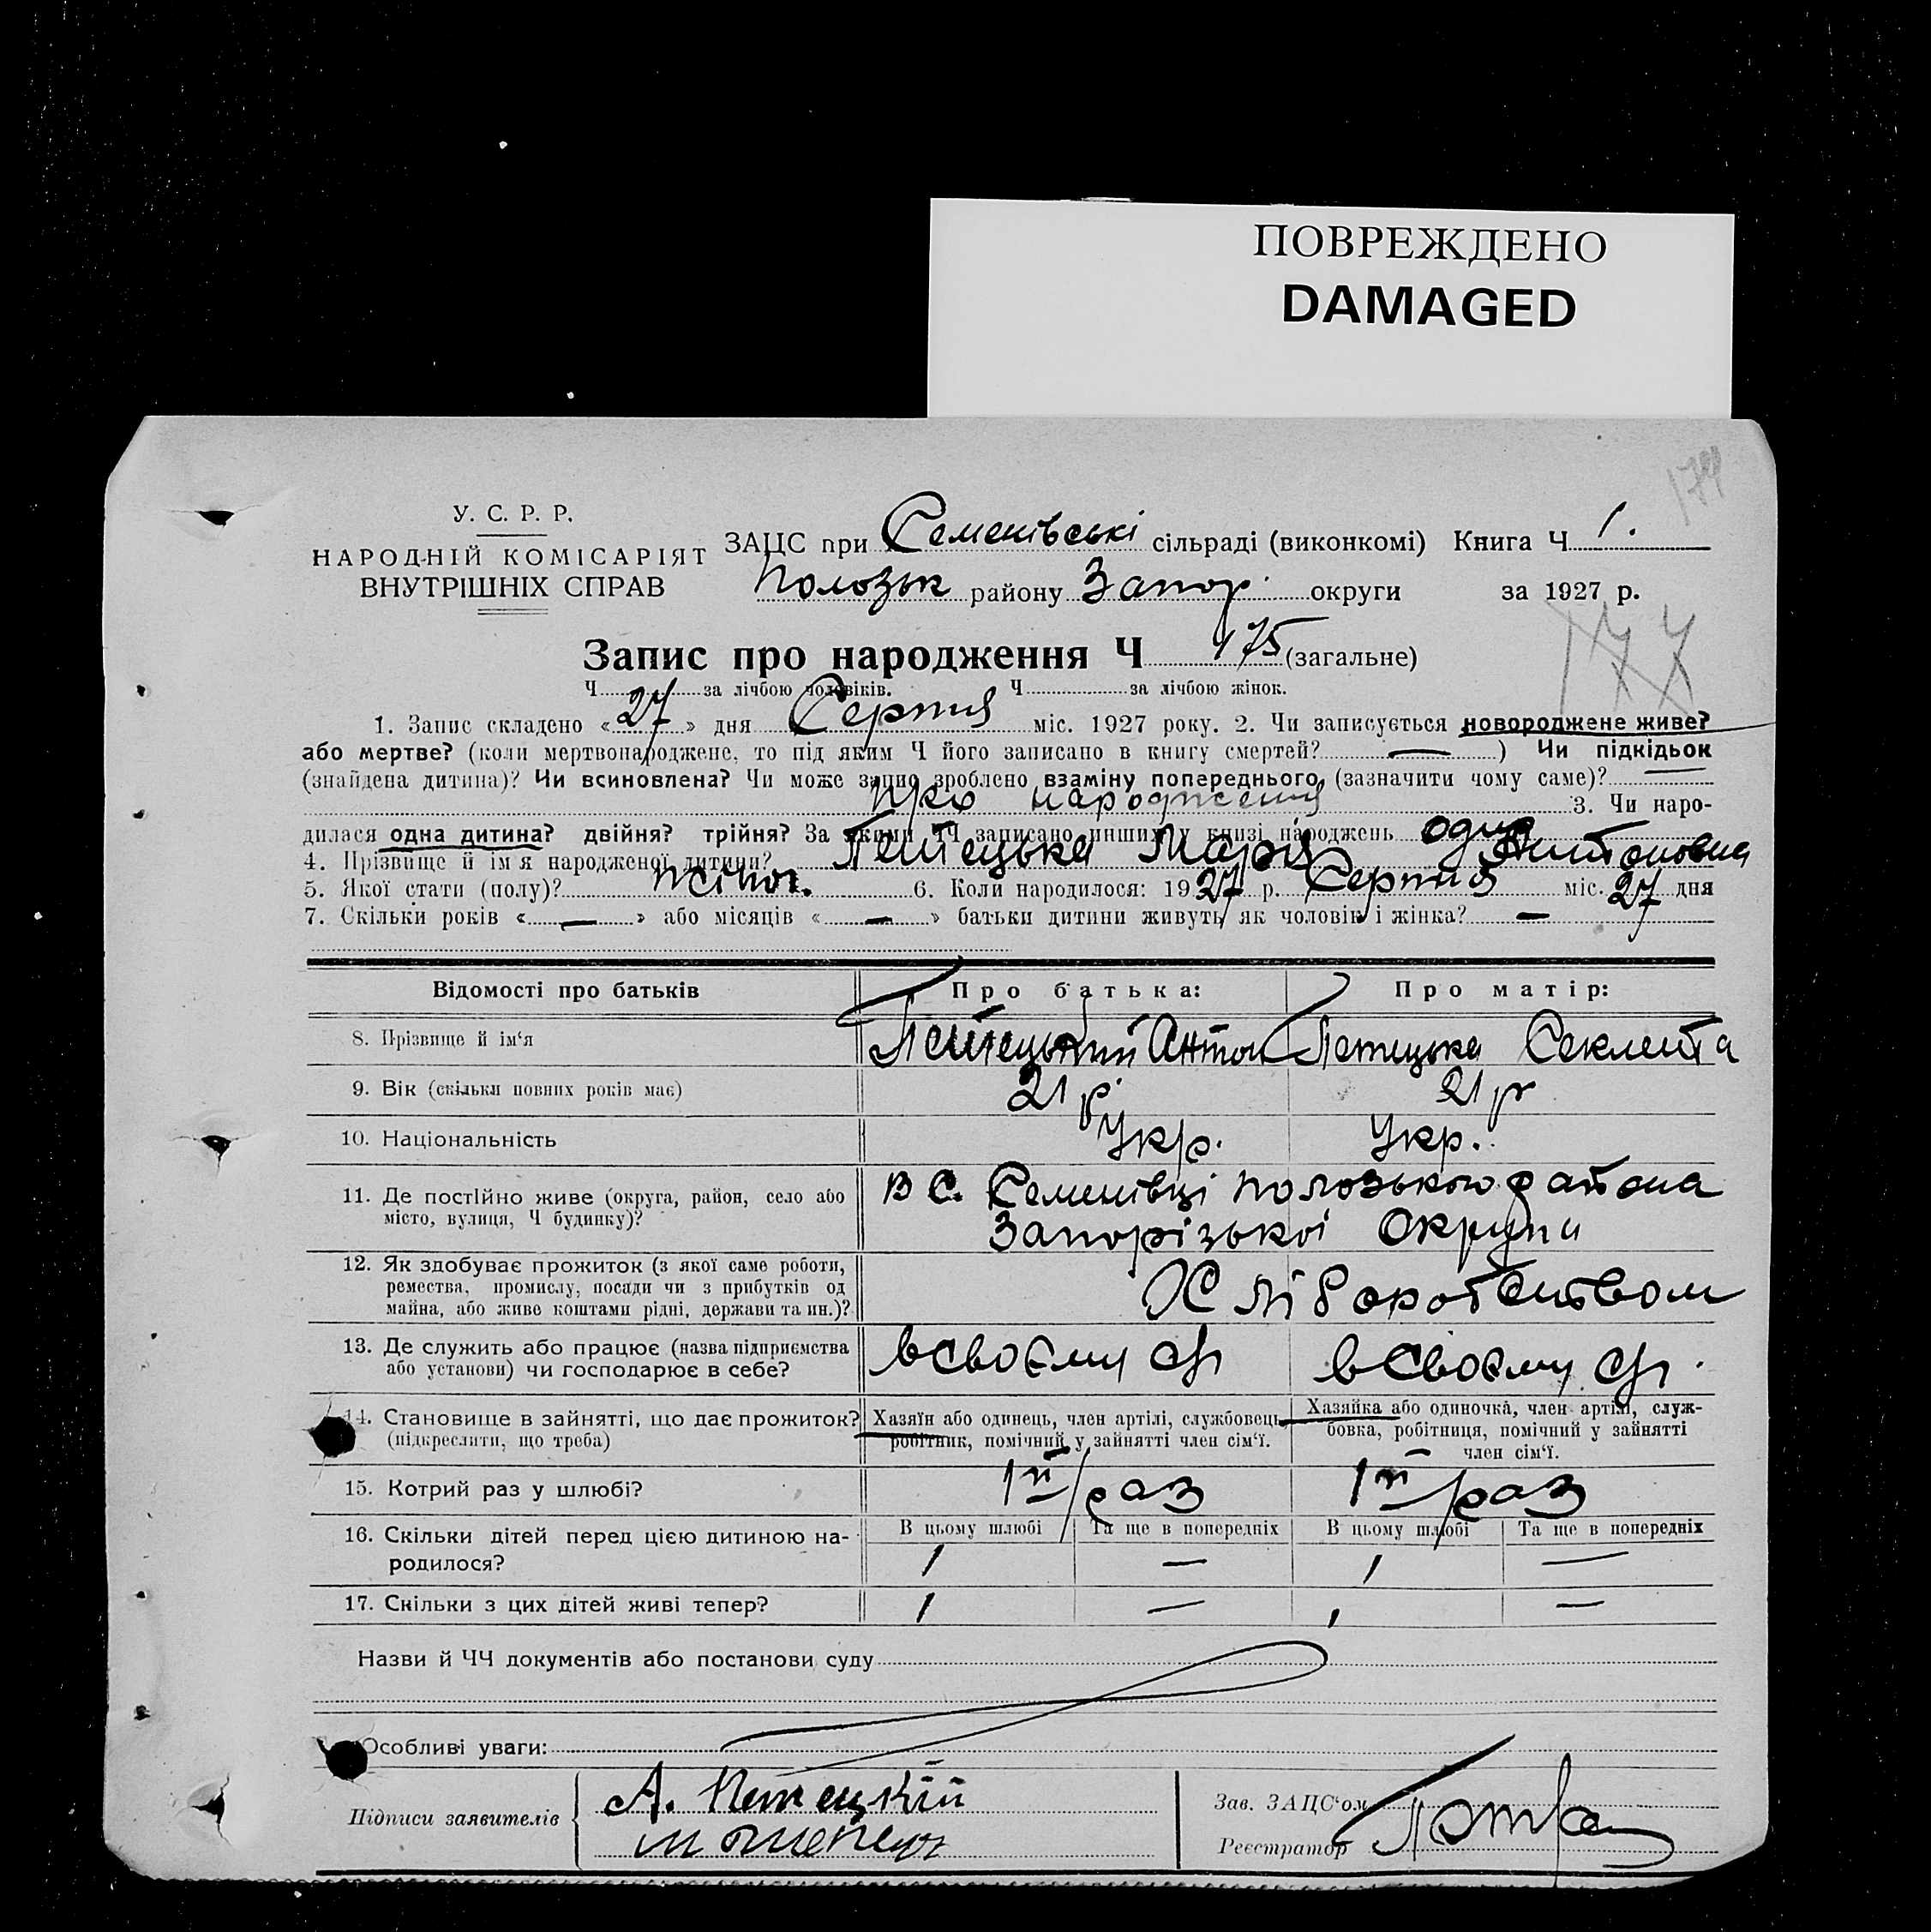 ПОВРЕЖДЕНО
DAMAGED
У. С. Р. Р.
НАРОДНІЙ КОМІСАРІЯТ
ВНУТРІШНІХ СПРАВ
ЗАЦС при Семенівські сільраді (виконкомі) Книга Ч 1.
Полозьк району Запор. округи за 1927 р.
177
Запис про народження Ч 175 (загальне)
Ч за лічбою чоловіків. Ч за лічбою жінок.
1. Запис складено «27» дня Серпня міс. 1927 року. 2. Чи записується новороджене живе?
або мертве? (коли мертвонароджене, то під яким Ч його записано в книгу смертей? —) Чи підкідьок
(знайдена дитина)? Чи всиновлена? Чи може запис зроблено взаміну попереднього (зазначити чому саме)? —
про народження 3. Чи наро-
дилася одна дитина? двійня? трійня? За якими ЧЧ записано инших у книзі народжень одна
4. Прізвище й ім'я народженої дитини? Петецька Марія Антоновна
5. Якої стати (полу)? жіноч. 6. Коли народилося: 1927 р. Серпня міс. 27 дня
7. Скільки років «—» або місяців «—» батьки дитини живуть як чоловік і жінка? —
Відомості про батьків Про батька: Про матір:
8. Прізвище й ім'я Петецький Антон Петецька Секлета
9. Вік (скільки повних років має) 21 р. 21 р
10. Національність Укр. Укр.
11. Де постійно живе (округа, район, село або
місто, вулиця, Ч будинку)?
в с. Семенівці Полозького района
Запорізької Округи
12. Як здобуває прожиток (з якої саме роботи,
ремества, промислу, посади чи з прибутків од
майна, або живе коштами рідні, держави та ин.)?
Хліборобством
13. Де служить або працює (назва підприємства
або установи) чи господарює в себе?
в своєму в своєму
14. Становище в зайнятті, що дає прожиток?
(підкреслити, що треба)
Хазяїн або одинець, член артілі, службовець,
робітник, помічний у зайнятті член сім'ї.
Хазяйка або одиночка, член артілі, служ-
бовка, робітниця, помічний у зайнятті
член сім'ї.
15. Котрий раз у шлюбі? 1й раз 1й раз
16. Скільки дітей перед цією дитиною на-
родилося?
В цьому шлюбі Та ще в попередніх В цьому шлюбі Та ще в попередніх
1 — 1 —
17. Скільки з цих дітей живі тепер? 1 — 1 —
Назви й ЧЧ документів або постанови суду
Особливі уваги:
Підписи заявителів
А. Петецкій
Зав. ЗАЦС'ом
Реєстратор